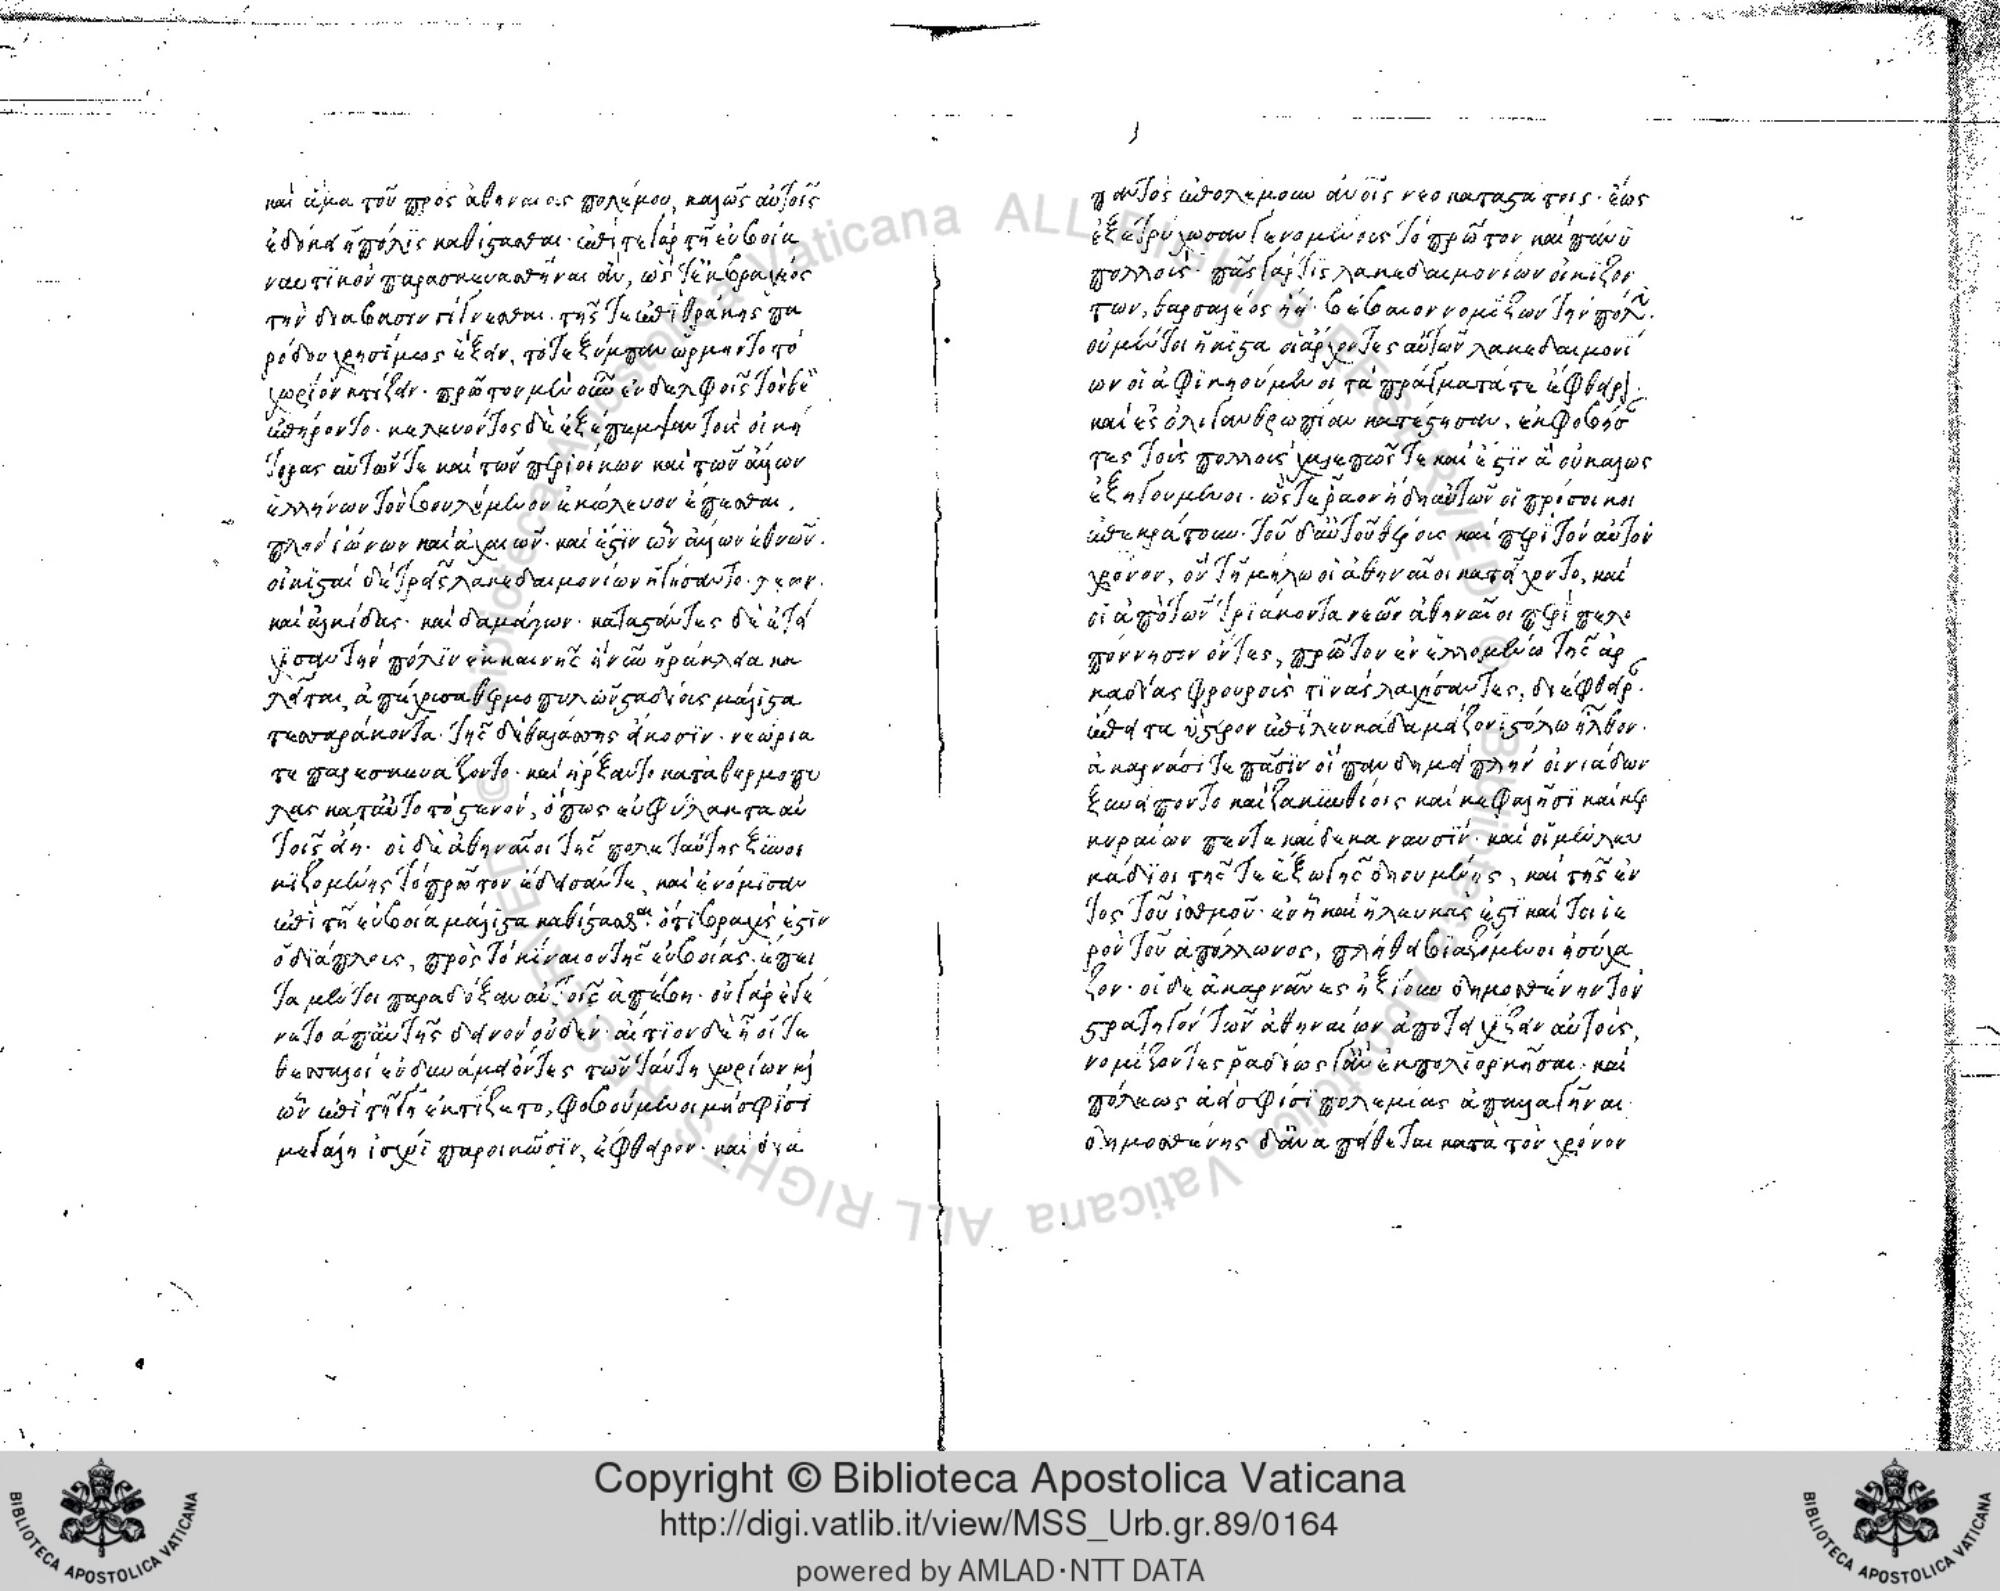 καὶ ἅμα τοῦ πρὸς ἀθηναίους πολέμου, καλῶς αὐτοῖς
ἐδόκει ἡ πόλις καθίστασθαι· ἐπί τε γὰρ τῆ εὐβοία
ναυτικὸν παρασκευασθῆναι ἂν, ὥστ' ἐκ βραχέος
τὴν διάβασιν γίγνεσθαι· τῆς τε ἐπὶ θράκης πα
ρόδου χρησίμως ἕξειν, τό τε ξύμπαν ὥρμηντο τὸ
χωρίον κτίζειν· πρῶτον μὲν οὖν ἐν δελφοῖς τὸν θεὸν
ἐπήροντο· κελεύοντος δὲ ἐξέπεμψαν τοὺς οἰκή
τορας αὐτῶν τε καὶ τῶν περιοίκων καὶ τῶν ἄλλων
ἑλλήνων τὸν βουλόμενον ἐκέλευον ἕπεσθαι,
πλὴν ἰώνων καὶ ἀχαιῶν· καὶ ἔστιν ὧν ἄλλων ἐθνῶν.
οἰκισταὶ δὲ τρεῖς λακεδαιμονίων ἡγήσαντο· λέων.
καὶ ἀλκίδας· καὶ δαμάγων· καταστάντες δὲ ἐτεί
χισαν τὴν πόλιν ἐκ καινῆς ἣ νῦν ἡράκλεια κα
λεῖται, ἀπέχουσα θερμοπυλῶν σταδίους μάλιστα
τεσσαράκοντα· τῆς δὲ θαλάσσης εἴκοσιν· νεώρια
τε παρεσκευάζοντο· καὶ ἤρξαντο κατὰ θερμοπύ
λας κατ' αὐτὸ τὸ στενόν, ὅπως εὐφύλακτα αὐ
τοῖς εἴη· οἱ δὲ ἀθηναῖοι τῆς πόλεως ταύτης ξυνοι
κιζομένης τὸ πρῶτον ἔδεισάν τε, καὶ ἐνόμισαν
ἐπὶ τῆ εὐβοία μάλιστα καθίστασθαι· ὅτι βραχύς ἐστιν
ὁ διάπλους, πρὸς τὸ κήναιον τῆς εὐβοίας· ἔπει
τα μέντοι παρὰ δόξαν αὐτοῖς ἀπέβη· οὐ γὰρ ἐγέ
νετο ἀπ' αὐτῆς δεινὸν οὐδέν· αἴτιον δὲ ἦν οἵ τε
θεσσαλοὶ ἐν δυνάμει ὄντες τῶν ταύτη χωρίων καὶ
ὧν ἐπὶ τῆ γῆ ἐκτίζετο, φοβούμενοι μὴ σφίσι
μεγάλη ἰσχύϊ παροικῶσιν, ἔφθειρον· καὶ διὰ
παντὸς ἐπολέμουν ἀνθρώποις νεοκαταστάτοις· ἕως
ἐξετρύχωσαν γενομένους τὸ πρῶτον καὶ πάνυ
πολλούς· πᾶς γάρ τις λακεδαιμονίων οἰκιζόν
των, θαρσαλέως ἤει· βέβαιον νομίζων τὴν πόλιν.
οὐ μέντοι ἥκιστα οἱ ἄρχοντες αὐτῶν λακεδαιμονί
ων οἱ ἀφικνούμενοι τὰ πράγματά τε ἔφθειρον.
καὶ ἐς ὀλιγανθρωπίαν κατέστησαν, ἐκφοβήσαν
τες τοὺς πολλοὺς χαλεπῶς τε καὶ ἔστιν ἃ οὐ καλῶς
ἐξηγούμενοι· ὥστε ῥᾷον ἤδη αὐτῶν οἱ πρόσοικοι
ἐπεκράτουν· τοῦ δ' αὐτοῦ θέρους καὶ περὶ τὸν αὐτὸν
χρόνον, ὃν τῆ μήλω οἱ ἀθηναῖοι κατείχοντο, καὶ
οἱ ἀπὸ τῶν τριάκοντα νεῶν ἀθηναῖοι περὶ πελο
πόννησον ὄντες, πρῶτον ἐν ἐλλομένω τῆς ἀρ
καδίας φρουρούς τινας λοχήσαντες, διέφθειραν.
ἔπειτα ὕστερον ἐπὶ λευκάδα μείζονι στόλω ἦλθον.
ἀκαρνᾶσί τε πᾶσιν οἳ πανδημεὶ πλὴν οἰνιάδων
ξυνείποντο καὶ ζακυνθίοις καὶ κεφαλῆσι καὶ κερ
κυραίων πέντε καὶ δέκα ναυσίν· καὶ οἱ μὲν λευ
κάδιοι τῆς τε ἔξω γῆς δηουμένης, καὶ τῆς ἐν
τὸς τοῦ ἰσθμοῦ· ἐν ἧ καὶ ἡ λευκάς ἐστι καὶ τὸ ἱε
ρὸν τοῦ ἀπόλλωνος, πλήθει βιαζόμενοι ἡσύχα
ζον· οἱ δὲ ἀκαρνᾶνες ἠξίουν δημοσθένην τὸν
στρατηγὸν τῶν ἀθηναίων ἀποτειχίζειν αὐτούς,
νομίζοντες ῥαδίως γ' ἂν ἐκπολιορκῆσαι· καὶ
πόλεως ἀεὶ σφίσι πολεμίας ἀπαλλαγῆναι·
δημοσθένης δ' ἀναπείθεται κατὰ τὸν χρόνον
Copyright © Biblioteca Apostolica Vaticana
http://digi.vatlib.it/view/MSS_Urb.gr.89/0164
powered by AMLAD·NTT DATA